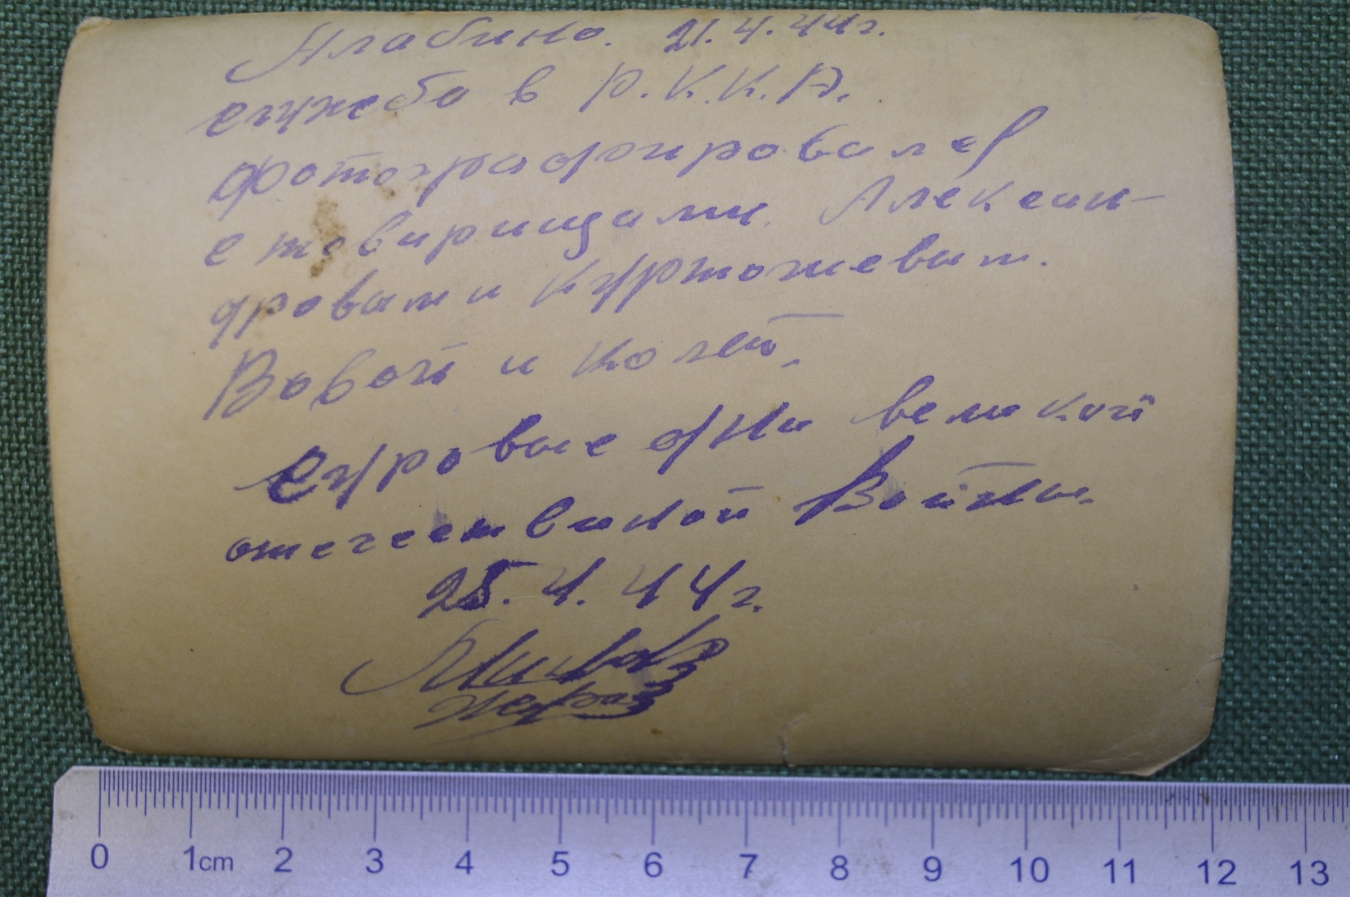 Алабино. 21.4.44г.
служба в Р.К.К.А.
фотографировался
с товарищами Алексан-
дровым и Куртошевым.
Вовой и Колей.
Суровые дни великой
отечественной Войны.
25.4.44г.
0 1cm 2 3 4 5 6 7 8 9 10 11 12 13